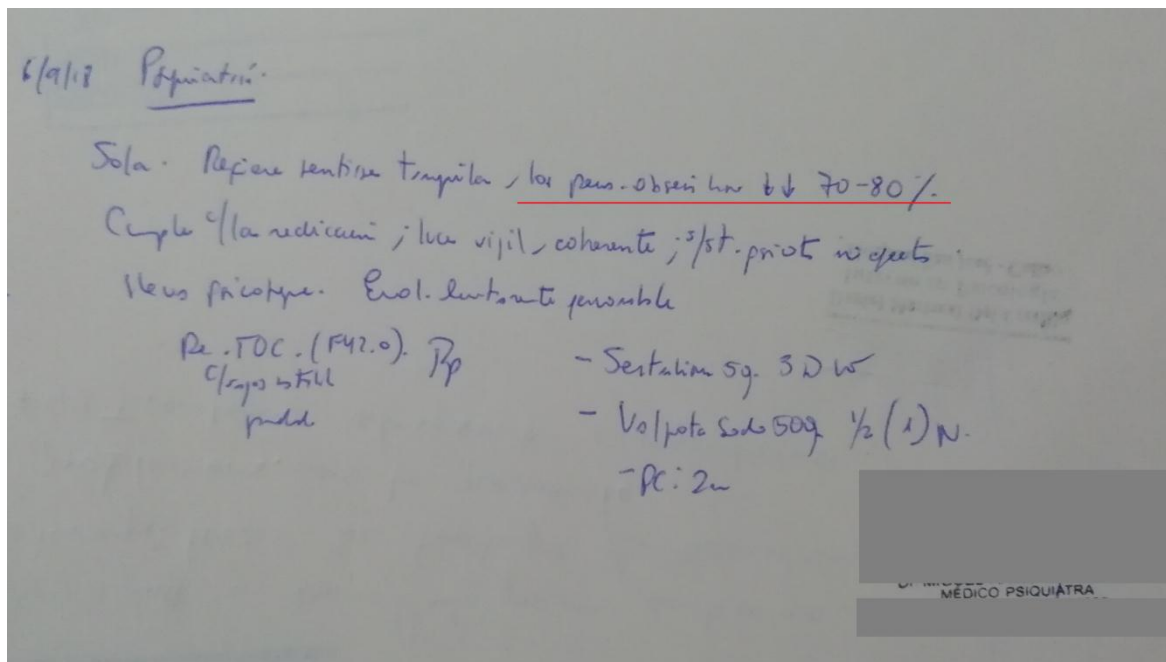 6/9/18 Psiquiatría.
Sola. Refiere sentirse tranquila, los pens. obsesi han ↓↓ 70-80%.
Cumple c/la medicación; luce vigil, coherente; s/st. psicót no
Lleva psicoterap. Evol. lentamente favorable
De. TOC. (F42.0). Rp
- Sertralina 50. 3 D
c/
- Valproato Sodio 500 1/2 (1) N.
- PC: 2m
MÉDICO PSIQUIÁTRA